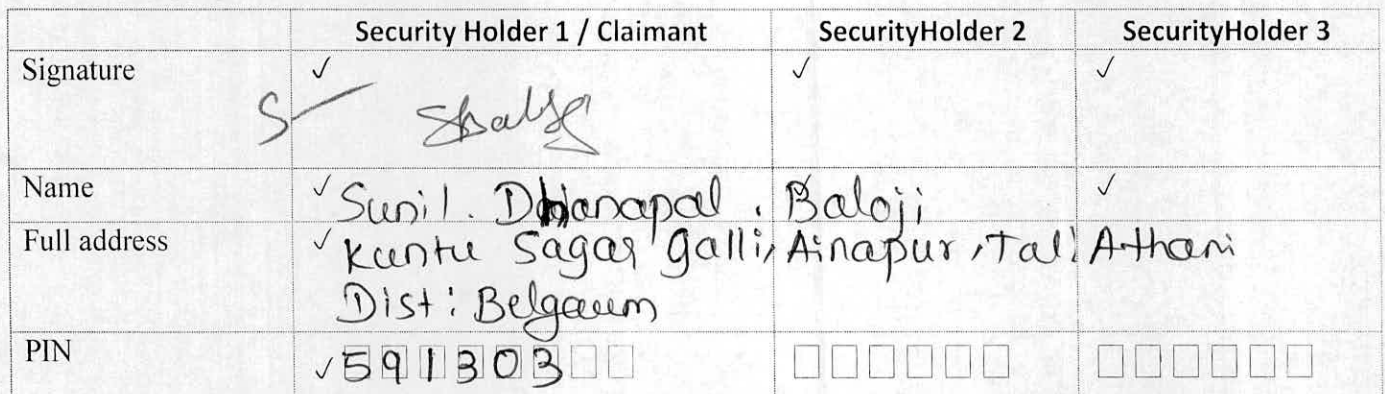 Security Holder 1 / Claimant SecurityHolder 2 SecurityHolder 3
Signature ✓ ✓ ✓
Name ✓ Sunil. Dhanapal. Baloji ✓
Full address ✓ Kuntu Sagar galli, Ainapur, Tal: Athani
Dist: Belgaum
PIN ✓ 591303